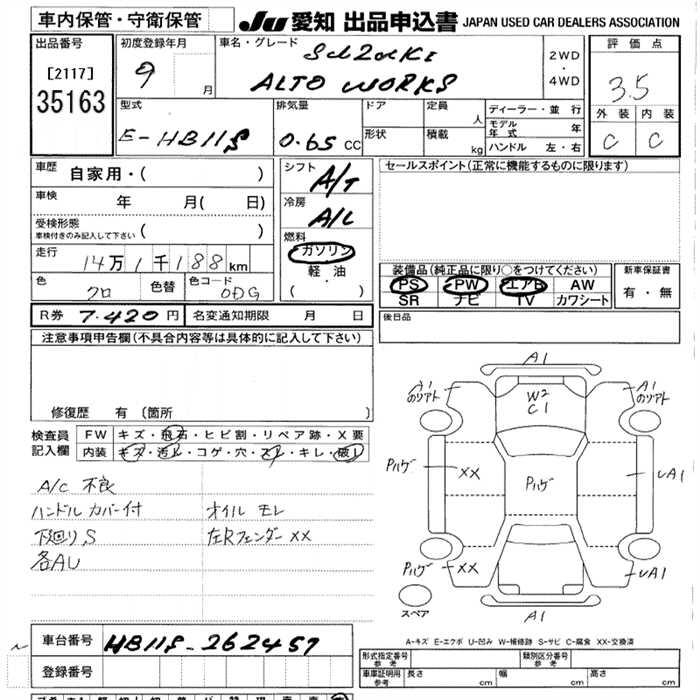 車内保管・守衛保管
JU 愛知 出品申込書 JAPAN USED CAR DEALERS ASSOCIATION
出品番号
[2117]
35163
初度登録年月
9 月
車名・グレード
ALTO WORKS
2WD
・
4WD
評価点
3.5
外装 内装
C C
型式
E-HB11S
排気量
0.65 CC
ドア
形状
定員
人
積載
kg
ディーラー・並行
モデル年式 年
ハンドル 左・右
車歴
自家用・( )
車検
年 月( 日)
受検形態
車検付きのみ記入して下さい ( )
走行
14万1千188km
色
クロ
色替
色コード
0DG
シフト
A/T
冷房
A/C
燃料
ガソリン
軽油
( ・ )
セールスポイント(正常に機能するものに限ります)
装備品(純正品に限り○をつけてください)
PS PW エアB AW
SR ナビ TV カワシート
新車保証書
有・無
R券 7.420円
名変通知期限 月 日
後日品
注意事項申告欄(不具合内容等は具体的に記入して下さい)
修復歴 有 〔箇所 〕
検査員記入欄
FW キズ・飛石・ヒビ割・リペア跡・X要
内装 キズ・汚れ・コゲ・穴・スレ・キレ・破れ
A/C 不良
ハンドル カバー付 オイル モレ
下廻り S 左Rフェンダー XX
各AU
A1
A1
のリアト
W2
C1
A1
のリアト
Pハゲ
XX
Pハゲ
A1
Pハゲ
XX
A1
A1
スペア
A-キズ E-エクボ U-凹み W-補修跡 S-サビ C-腐食 XX-交換済
車台番号
HB11S-262457
登録番号
形式指定番号
参考
類別区分番号
参考
車庫証明用
参考
長さ
幅
高さ